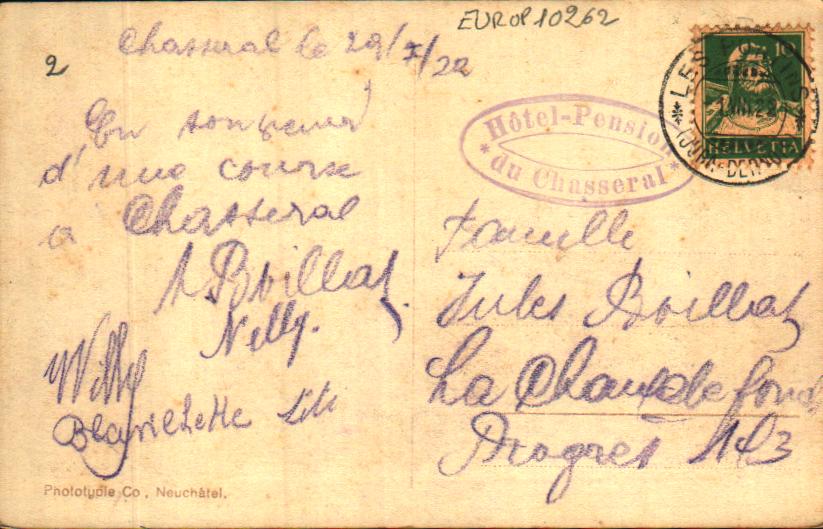 EUROP10262
2
Chasseral le 29/X/22
En souvenir
d'une course
a Chasseral
A Boillat
Nelly.
Willy
Blanchette Lili
Phototypie Co, Neuchâtel.
Hôtel-Pension
* du Chasseral *
10
HELVETIA
LES
(JURA-BERNOIS)
Famille
Jules Boillat
La Chaux de fonds
Progrès 143